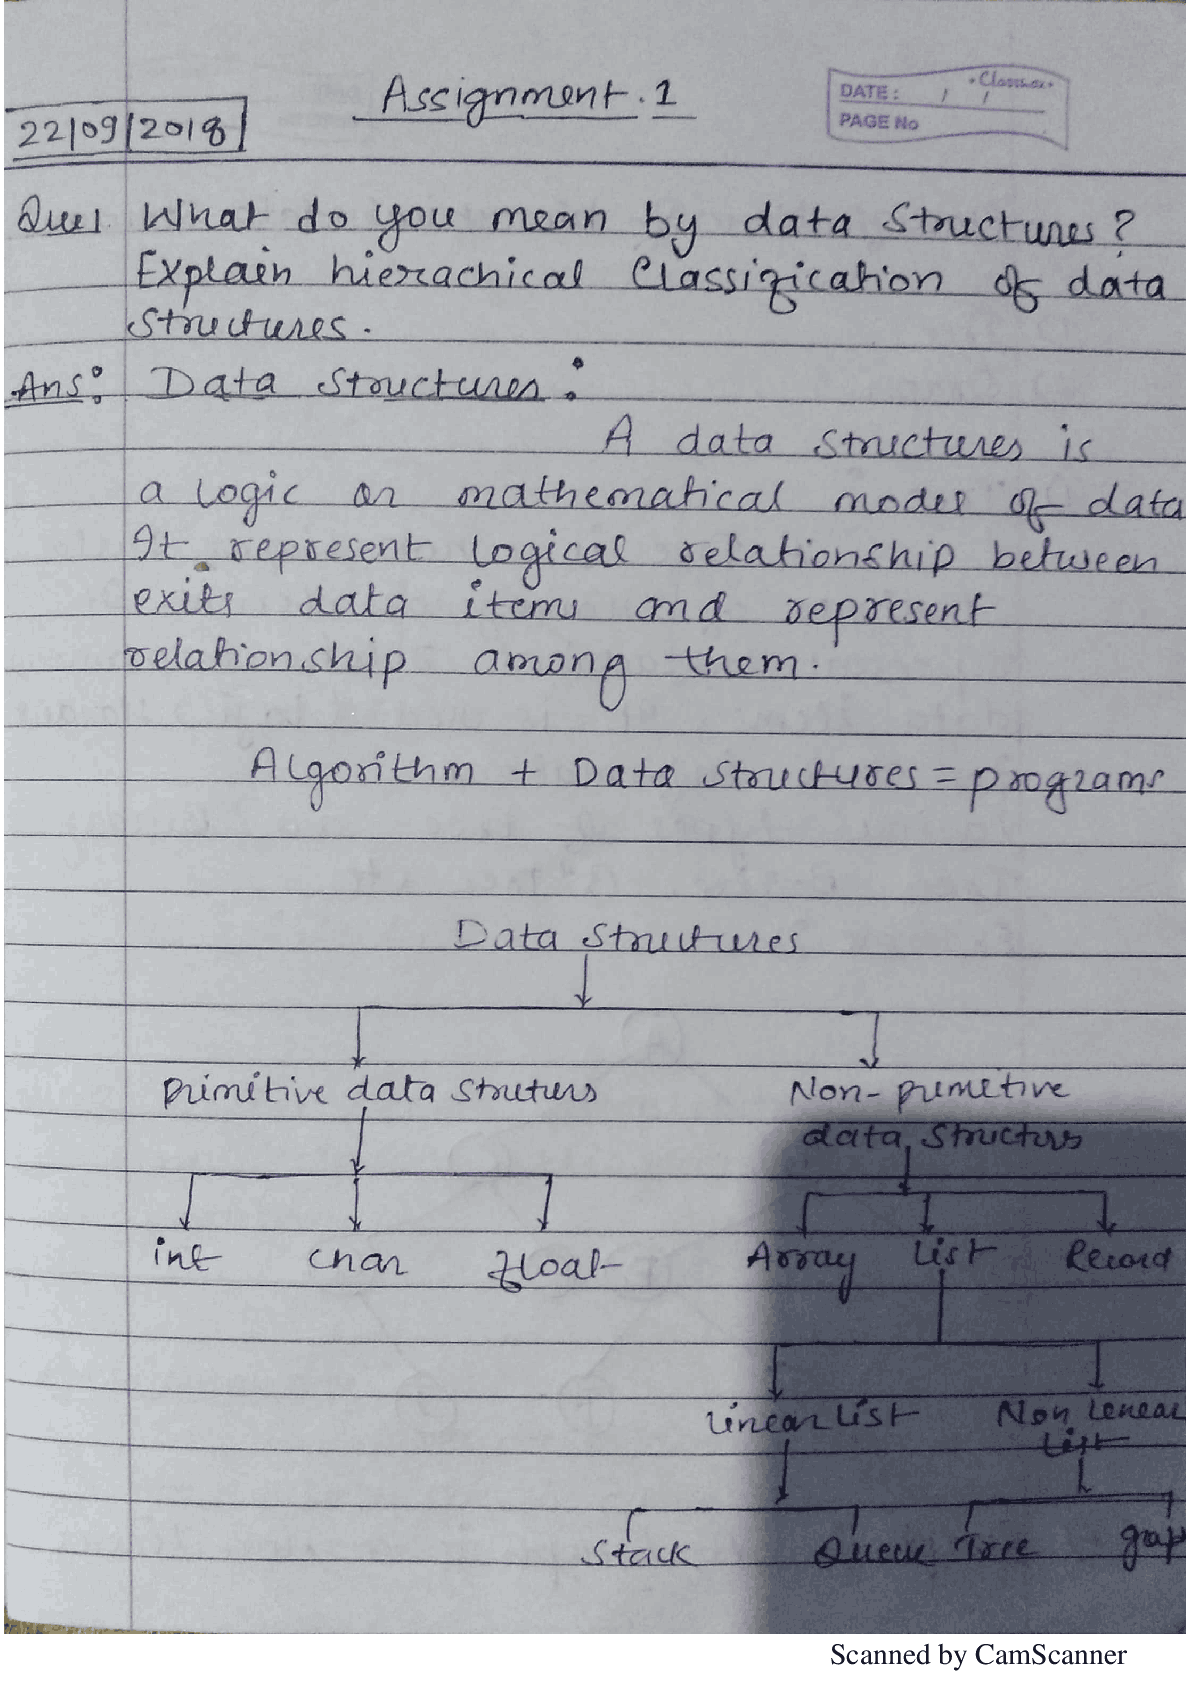 Assignment.1
22/09/2018
DATE: / / Classmax
PAGE No
Que1 What do you mean by data Structures?
Explain hierachical Classification of data
structures.
Ans: Data structures:
A data structures is
a logic or mathematical model of data
It represent logical relationship between
exits data items and represent
relationship among them.
Algorithm + Data structures = programs
Data Structures
Primitive data Struturs Non-primitive
data structurs
int char float Array List Record
Linear List Non Linear
List
Stack Queue Tree grap
Scanned by CamScanner